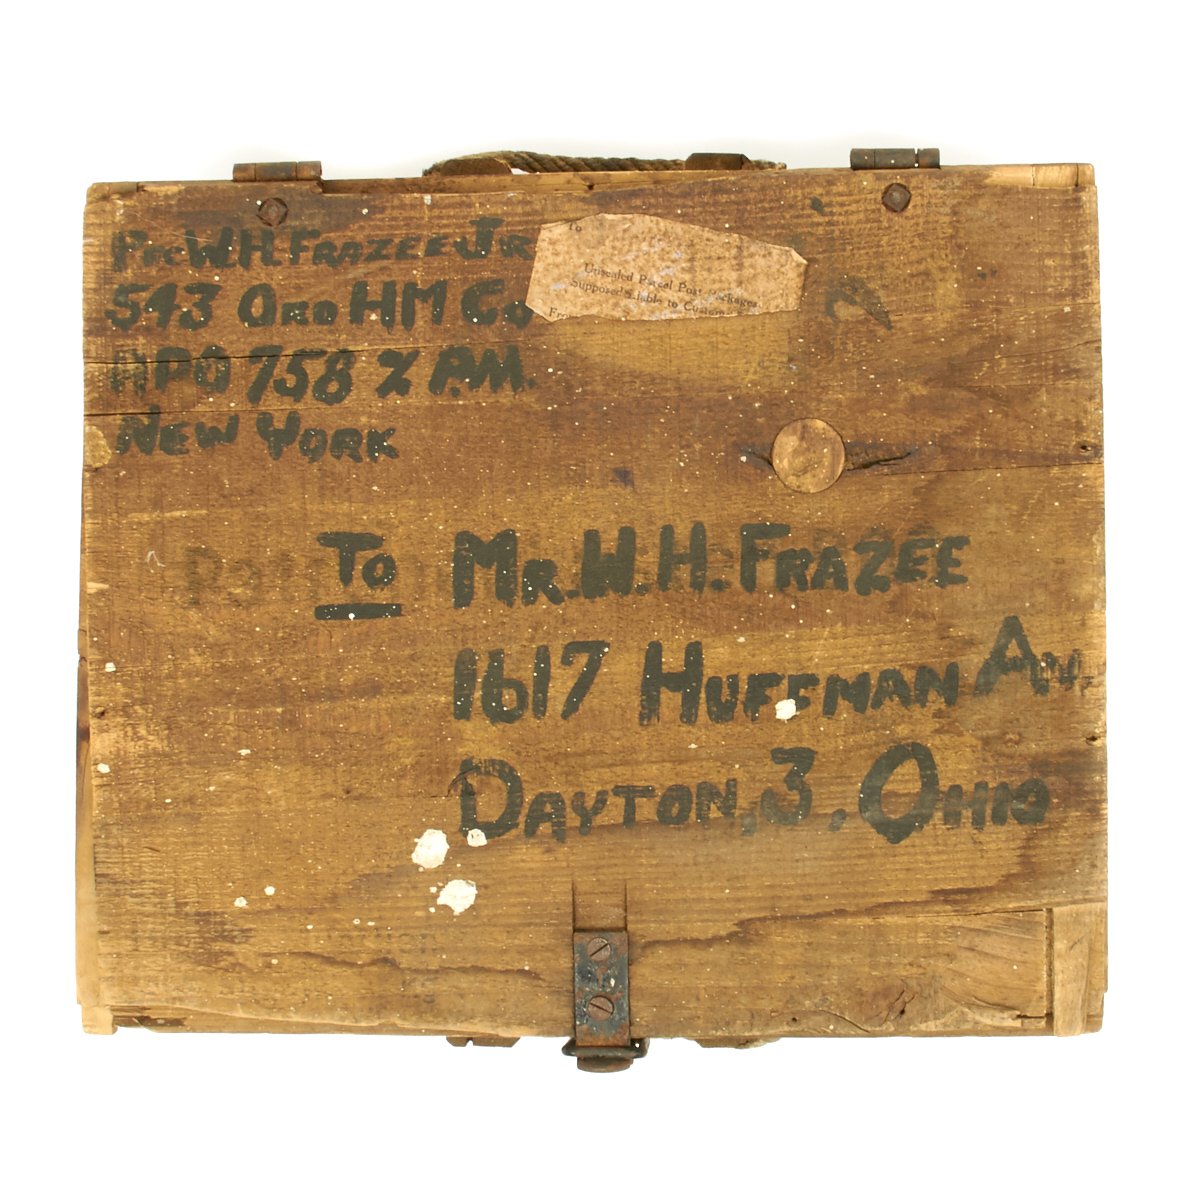 Pfc W.H. Frazee Jr
543 Ord HM Co
APO 758 % P.M.
New York
To
Unsealed Parcel Post Packages
Supposed Liable to Customs
From
To Mr. W. H. Frazee
1617 Huffman Ave.
Dayton, 3, Ohio